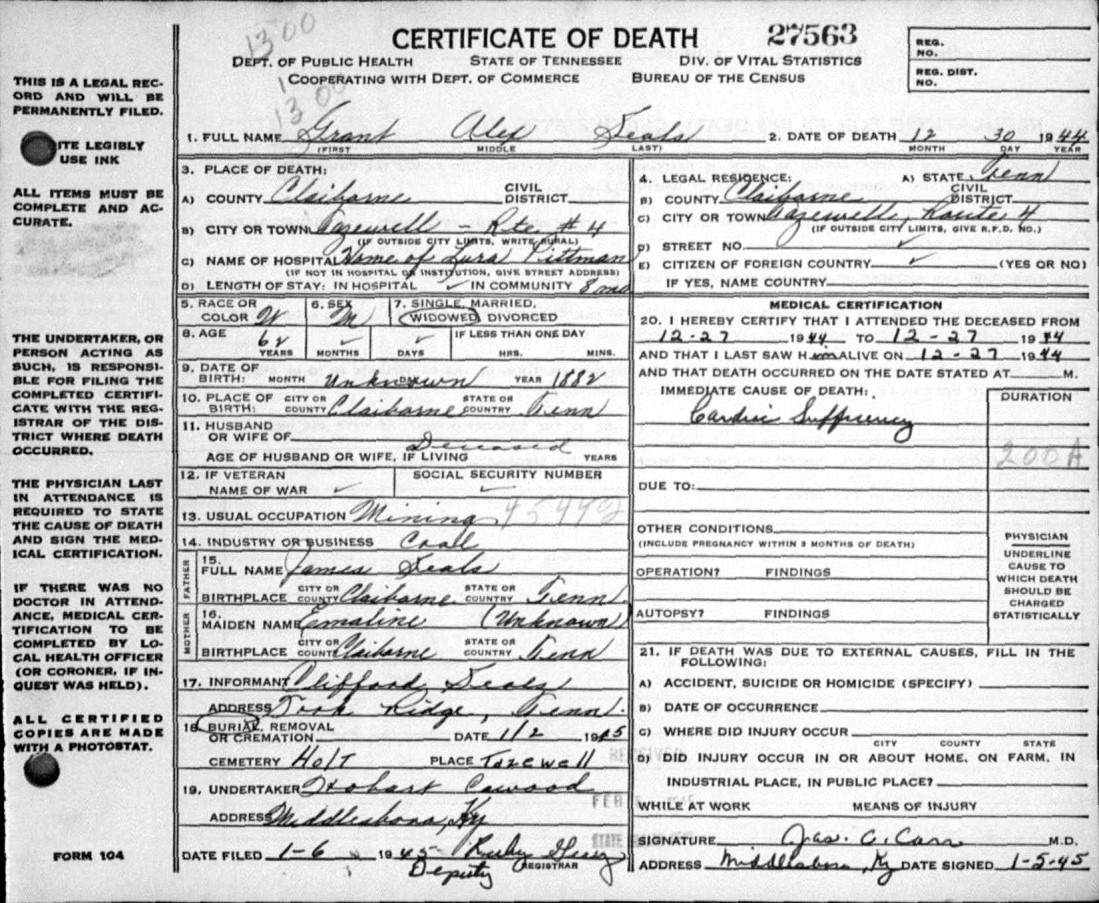 1300
CERTIFICATE OF DEATH 27563
DEPT. OF PUBLIC HEALTH STATE OF TENNESSEE DIV. OF VITAL STATISTICS
COOPERATING WITH DEPT. OF COMMERCE BUREAU OF THE CENSUS
1300
REG. NO.
REG. DIST. NO.
THIS IS A LEGAL REC-
ORD AND WILL BE
PERMANENTLY FILED.
ITE LEGIBLY
USE INK
ALL ITEMS MUST BE
COMPLETE AND AC-
CURATE.
THE UNDERTAKER, OR
PERSON ACTING AS
SUCH, IS RESPONSI-
BLE FOR FILING THE
COMPLETED CERTIFI-
CATE WITH THE REG-
ISTRAR OF THE DIS-
TRICT WHERE DEATH
OCCURRED.
THE PHYSICIAN LAST
IN ATTENDANCE IS
REQUIRED TO STATE
THE CAUSE OF DEATH
AND SIGN THE MED-
ICAL CERTIFICATION.
IF THERE WAS NO
DOCTOR IN ATTEND-
ANCE, MEDICAL CER-
TIFICATION TO BE
COMPLETED BY LO-
CAL HEALTH OFFICER
(OR CORONER, IF IN-
QUEST WAS HELD).
ALL CERTIFIED
COPIES ARE MADE
WITH A PHOTOSTAT.
FORM 104
1. FULL NAME Grant Alex Seals 2. DATE OF DEATH 12 30 1944
(FIRST) MIDDLE LAST) MONTH DAY YEAR
3. PLACE OF DEATH:
A) COUNTY Claiborne CIVIL DISTRICT
B) CITY OR TOWN Tazewell - Rte #4
(IF OUTSIDE CITY LIMITS, WRITE RURAL)
C) NAME OF HOSPITAL Home of Lura Pittman
(IF NOT IN HOSPITAL OR INSTITUTION, GIVE STREET ADDRESS)
D) LENGTH OF STAY: IN HOSPITAL ✓ IN COMMUNITY 8
5. RACE OR COLOR W 6. SEX M 7. SINGLE, MARRIED, WIDOWED, DIVORCED
8. AGE 62 YEARS ✓ MONTHS ✓ DAYS IF LESS THAN ONE DAY HRS. MINS.
9. DATE OF BIRTH: MONTH Unknown DAY YEAR 1882
10. PLACE OF BIRTH: CITY OR COUNTY Claiborne STATE OR COUNTRY Tenn
11. HUSBAND OR WIFE OF Deceased
AGE OF HUSBAND OR WIFE, IF LIVING YEARS
12. IF VETERAN NAME OF WAR ✓ SOCIAL SECURITY NUMBER ✓
13. USUAL OCCUPATION Mining
14. INDUSTRY OR BUSINESS Coal
FATHER
15. FULL NAME James Seals
BIRTHPLACE CITY OR COUNTY Claiborne STATE OR COUNTRY Tenn.
MOTHER
16. MAIDEN NAME Emaline (Unknown)
BIRTHPLACE CITY OR COUNTY Claiborne STATE OR COUNTRY Tenn
17. INFORMANT Clifford Seals
ADDRESS Ridge, Tenn.
18. BURIAL, REMOVAL OR CREMATION DATE 1/2 1945
CEMETERY Holt PLACE Tazewell
19. UNDERTAKER Hobart Cawood
ADDRESS Middlesboro, Ky
DATE FILED 1-6 1945 Ruby
Deputy REGISTRAR
4. LEGAL RESIDENCE: A) STATE Tenn
B) COUNTY Claiborne CIVIL DISTRICT
C) CITY OR TOWN Tazewell, Route 4
(IF OUTSIDE CITY LIMITS, GIVE R.F.D. NO.)
D) STREET NO. ✓
E) CITIZEN OF FOREIGN COUNTRY ✓ (YES OR NO)
IF YES, NAME COUNTRY
MEDICAL CERTIFICATION
20. I HEREBY CERTIFY THAT I ATTENDED THE DECEASED FROM
12-27 1944 TO 12-27 1944
AND THAT I LAST SAW Him ALIVE ON 12-27 1944
AND THAT DEATH OCCURRED ON THE DATE STATED AT M.
IMMEDIATE CAUSE OF DEATH: DURATION
Cardiac
200A
DUE TO:
OTHER CONDITIONS
(INCLUDE PREGNANCY WITHIN 3 MONTHS OF DEATH)
OPERATION? FINDINGS
AUTOPSY? FINDINGS
PHYSICIAN
UNDERLINE
CAUSE TO
WHICH DEATH
SHOULD BE
CHARGED
STATISTICALLY
21. IF DEATH WAS DUE TO EXTERNAL CAUSES, FILL IN THE
FOLLOWING:
A) ACCIDENT, SUICIDE OR HOMICIDE (SPECIFY)
B) DATE OF OCCURRENCE
C) WHERE DID INJURY OCCUR
CITY COUNTY STATE
D) DID INJURY OCCUR IN OR ABOUT HOME, ON FARM, IN
INDUSTRIAL PLACE, IN PUBLIC PLACE?
WHILE AT WORK MEANS OF INJURY
SIGNATURE Jas. C. Carr M.D.
ADDRESS Middlesboro, Ky DATE SIGNED 1-5-45